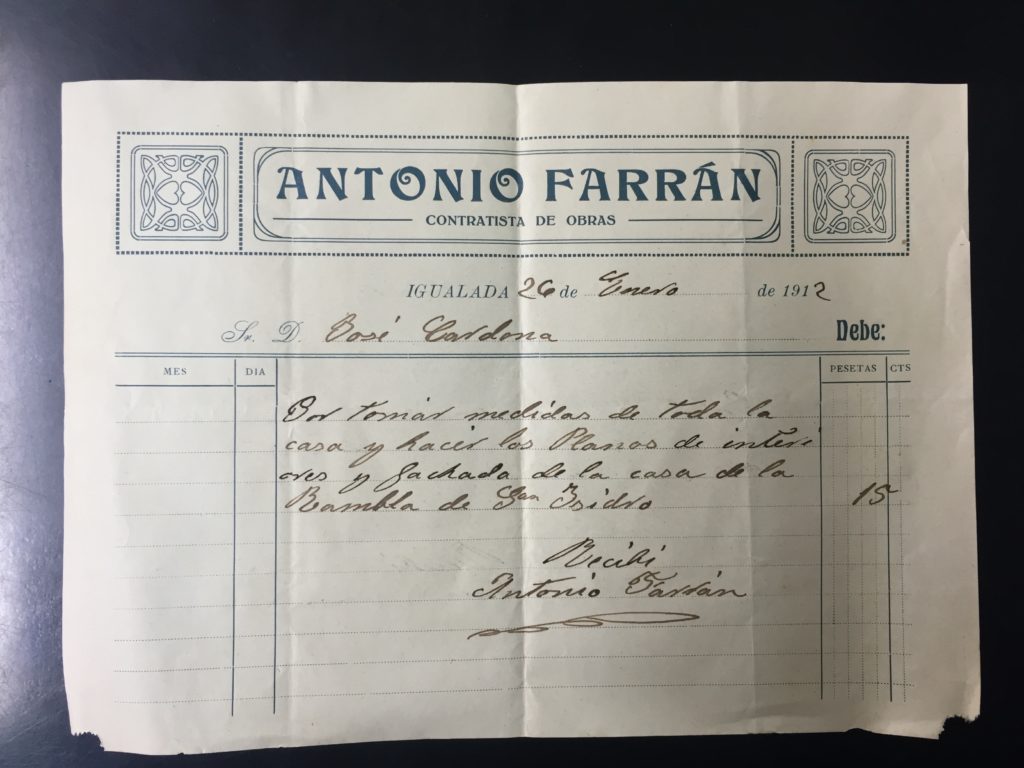 ANTONIO FARRÁN
CONTRATISTA DE OBRAS
IGUALADA 26 de Enero de 1912
Sr. D. José Cardona Debe:
MES DIA PESETAS CTS
Por tomár medidas de toda la
casa y hacér los Planos de interi
ores y fachada de la casa de la
Rambla de San Isidro 15
Recibí
Antonio Farrán